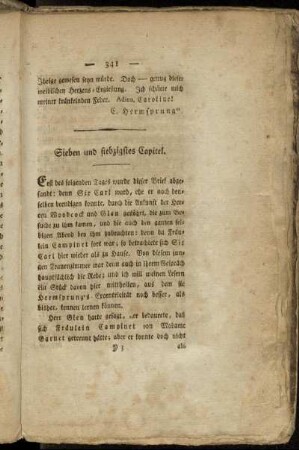 — 341 —
Ihrige gewesen seyn würde. Doch — genug dieser
weiblichen Herzens-Ergießung. Ich schäme mich
meiner Adieu, Caroline!
C. Hermsprung."
Sieben und siebzigstes Capitel.
Erst des folgenden Tages wurde dieser Brief abge-
sandt: denn Sir Carl ward, ehe er noch den-
selben beendigen konnte, durch die Ankunft der Her-
ren Woodcock und Glen gestört, die zum Be-
suche zu ihm kamen, und die auch den ganzen sel-
bigen Abend bei ihm zubrachten: denn da Fräu-
lein Campinet fort war, so betrachtete sich Sir
Carl hier wieder als zu Hause. Von diesem jun-
gen Frauenzimmer war denn auch in Ihrem Gespräch
hauptsächlich die Rede: und ich will meinen Lesern
ein Stück davon hier mittheilen, aus dem sie
Hermsprung's Excentricität noch besser, als
bisher, kennen lernen können.
Herr Glen hatte gesagt, er bedauerte, daß
sich Fräulein Campinet von Madame
Garnet getrennt hätte; aber er konnte doch nicht
als